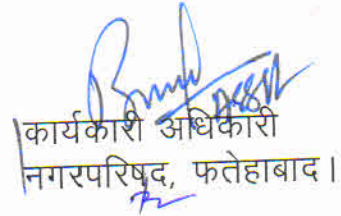 कार्यकारी अधिकारी
नगरपरिषद, फतेहाबाद।